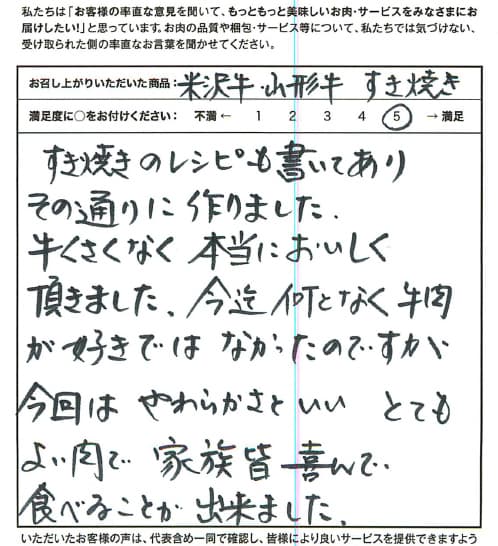 私たちは「お客様の率直な意見を聞いて、もっともっと美味しいお肉・サービスをみなさまにお
届けしたい!」と思っています。お肉の品質や梱包・サービス等について、私たちでは気づけない、
受け取られた側の率直なお言葉を聞かせてください。
お召し上がりいただいた商品: 米沢牛・山形牛 すき焼き
満足度に○をお付けください: 不満 ← 1 2 3 4 5 → 満足
すき焼きのレシピも書いてあり
その通りに作りました.
牛くさくなく本当においしく
頂きました.今迄何となく牛肉
が好きではなかったのですが
今回はやわらかさといいとても
よい肉で家族皆喜んで
食べることが出来ました.
いただいたお客様の声は、代表含め一同で確認し、皆様により良いサービスを提供できますよう